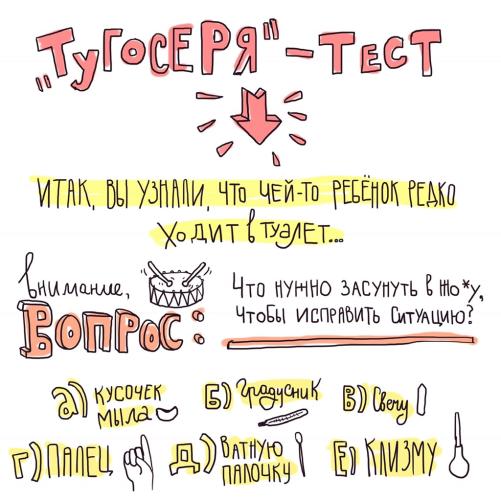 "ТУГОСЕРЯ"-ТЕСТ
ИТАК, ВЫ УЗНАЛИ, ЧТО ЧЕЙ-ТО РЕБЁНОК РЕДКО
ХОДИТ В ТУАЛЕТ...
Внимание,
ВОПРОС:
ЧТО НУЖНО ЗАСУНУТЬ В ЖО*У,
ЧТОБЫ ИСПРАВИТЬ СИТУАЦИЮ?
а) КУСОЧЕК
МЫЛА
Б) Градусник
В) Свечу
Г) ПАЛЕЦ
Д) ВАТНУЮ
ПАЛОЧКУ
Е) КЛИЗМУ